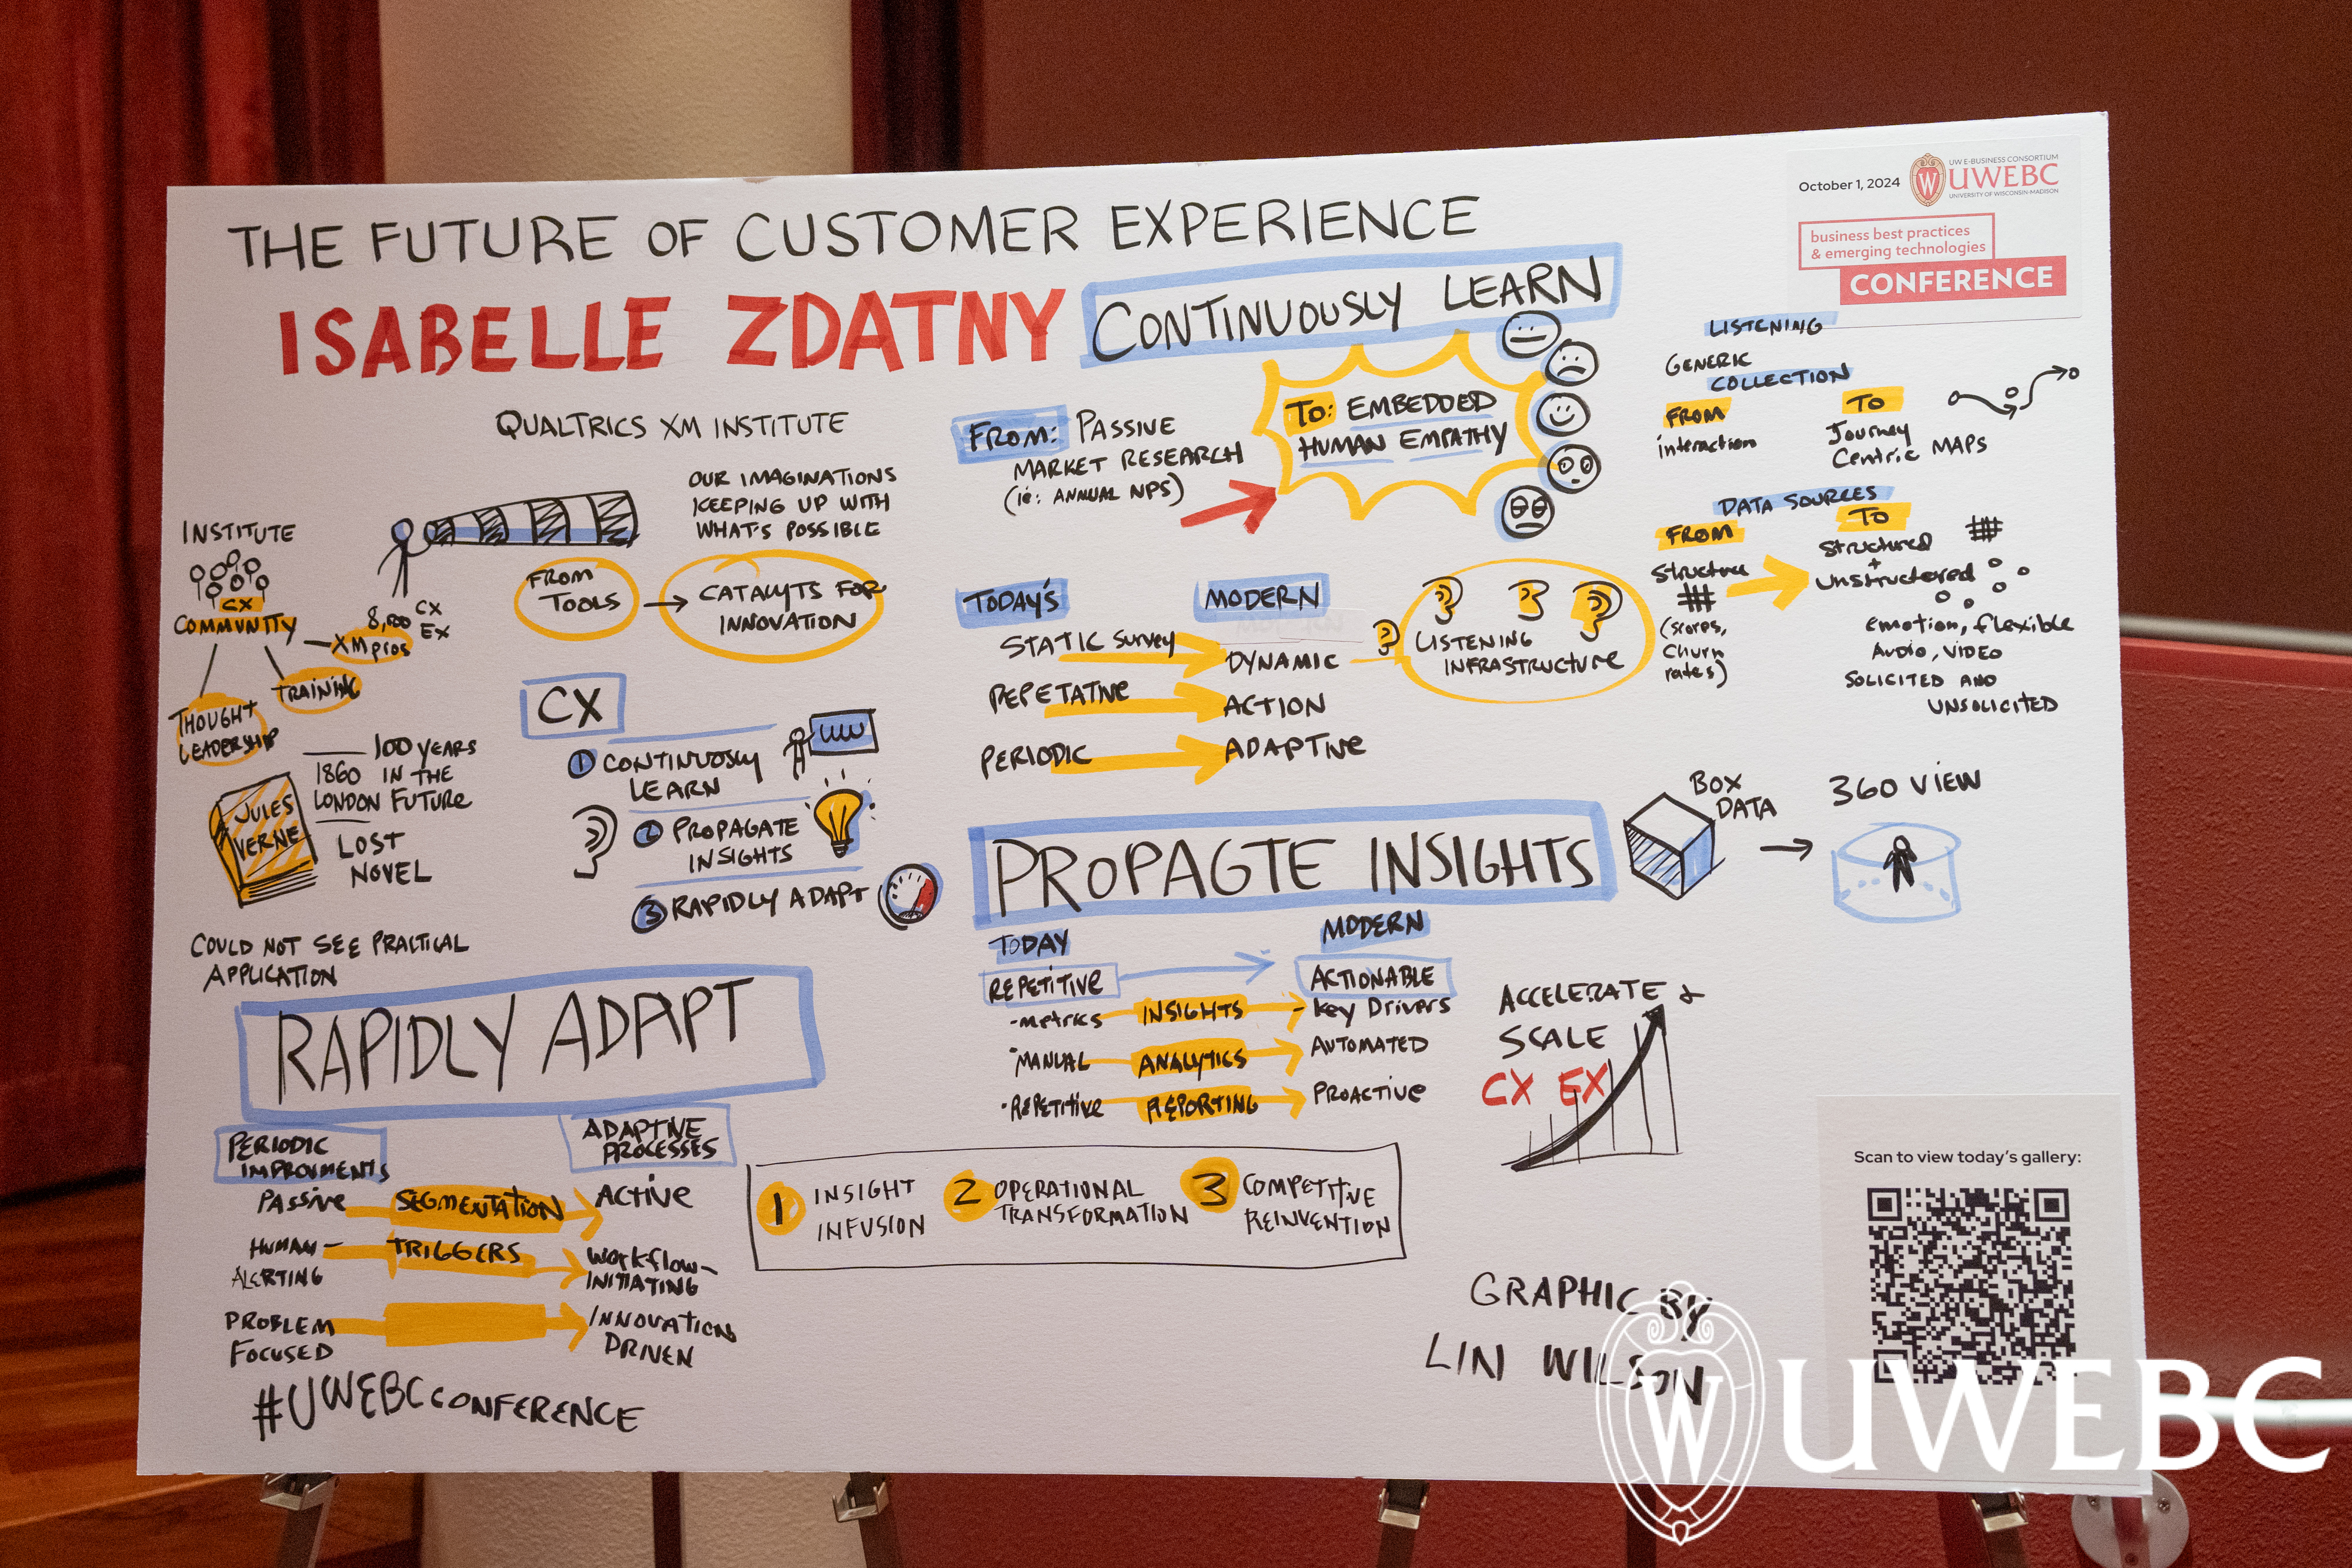 THE FUTURE OF CUSTOMER EXPERIENCE
ISABELLE ZDATNY
QUALTRICS XM INSTITUTE
October 1, 2024
UW E-BUSINESS CONSORTIUM
UWEBC
UNIVERSITY OF WISCONSIN-MADISON
business best practices
& emerging technologies
CONFERENCE
INSTITUTE
CX
COMMUNITY
8,000 CX
EX
XM pros
TRAINING
THOUGHT
LEADERSHIP
OUR IMAGINATIONS
KEEPING UP WITH
WHAT'S POSSIBLE
FROM
TOOLS
CATALYTS FOR
INNOVATION
JULES
VERNE
100 YEARS
1860 IN THE
LONDON FUTURE
LOST
NOVEL
COULD NOT SEE PRACTICAL
APPLICATION
CX
1 CONTINUOSLY
LEARN
2 PROPAGATE
INSIGHTS
3 RAPIDLY ADAPT
CONTINUOUSLY LEARN
FROM: PASSIVE
MARKET RESEARCH
(ie: ANNUAL NPS)
TO: EMBEDDED
HUMAN EMPATHY
TODAY'S
MODERN
STATIC SURVEY
DYNAMIC
REPETATIVE
ACTION
PERIODIC
ADAPTIVE
LISTENING
INFRASTRUCTURE
LISTENING
GENERIC
COLLECTION
FROM
TO
interaction
Journey
Centric MAPS
DATA SOURCES
FROM
TO
Structure
(scores,
churn
rates)
Structured
+
unstructored
emotion, flexible
AUDIO, VIDEO
SOLICITED AND
UNSOLICITED
PROPAGTE INSIGHTS
BOX
DATA
360 VIEW
TODAY
MODERN
REPETITIVE
ACTIONABLE
-metrics
INSIGHTS
- key Drivers
·MANUAL
ANALYTICS
AUTOMATED
·REPETITIVE
REPORTING
PROACTIVE
ACCELERATE &
SCALE
CX EX
RAPIDLY ADAPT
PERIODIC
IMPROVMENTS
ADAPTIVE
PROCESSES
PASSIVE
SEGMENTATION
ACTIVE
HUMAN-
ALERTING
TRIGGERS
WORKFLOW-
INITIATING
PROBLEM
FOCUSED
INNOVATION
DRIVEN
1 INSIGHT
INFUSION
2 OPERATIONAL
TRANSFORMATION
3 COMPETITIVE
REINVENTION
#UWEBCCONFERENCE
GRAPHIC BY
LIN WILSON
Scan to view today's gallery:
W UWEBC